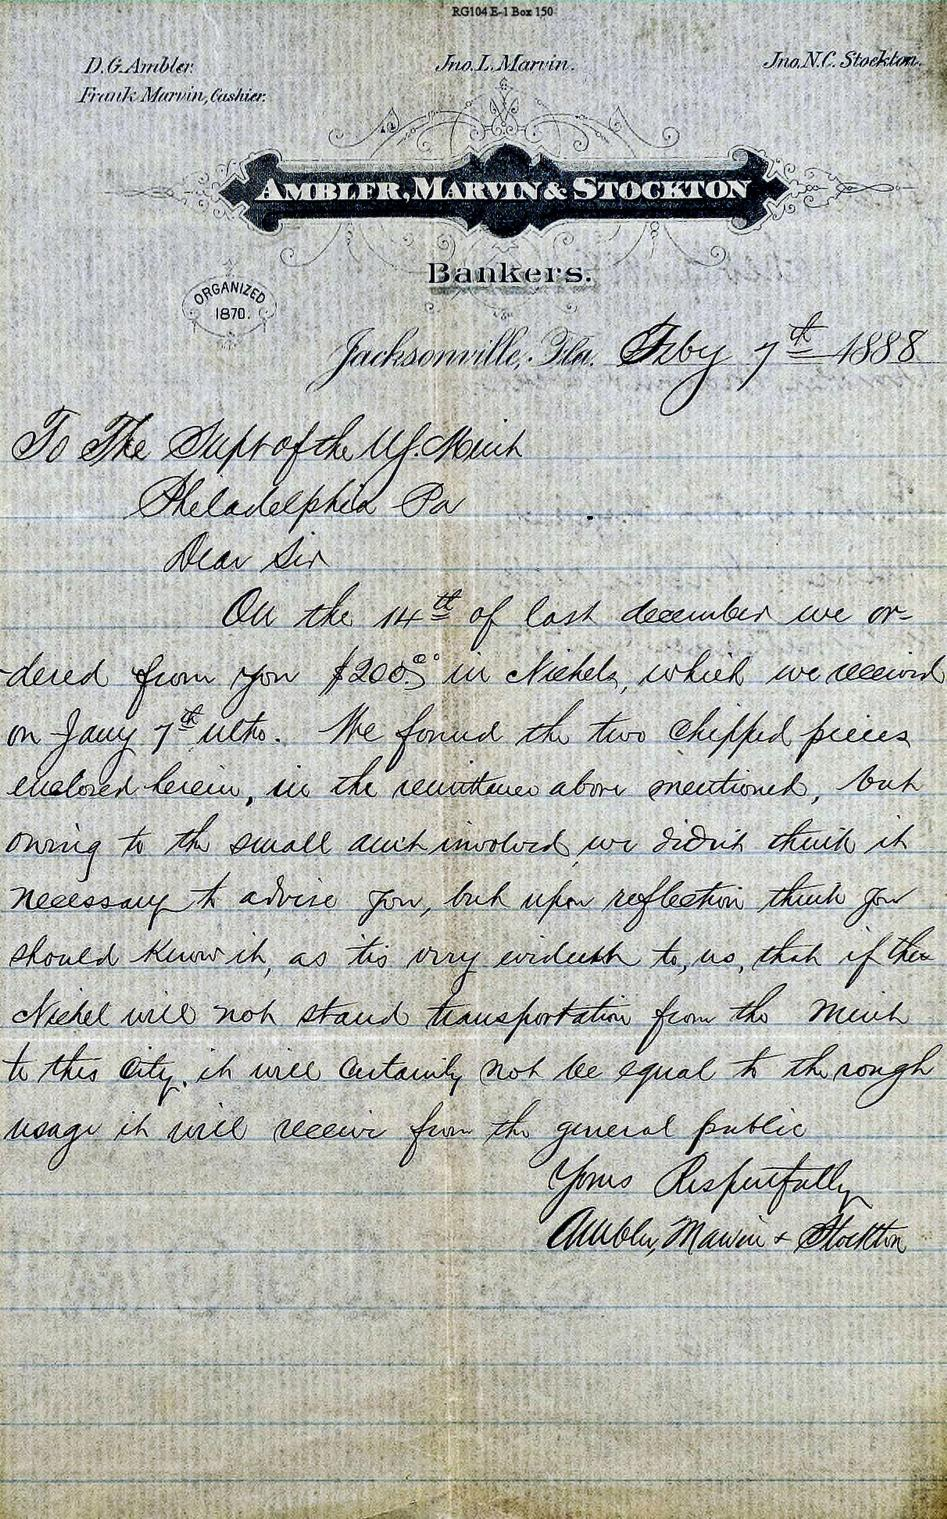 RG104 E-1 Box 150
D.G. Ambler. Jno. L. Marvin. Jno. N.C. Stockton.
Frank Marvin, Cashier.
AMBLER, MARVIN & STOCKTON
Bankers.
ORGANIZED
1870.
Jacksonville, Fla. Feby 7th 1888
To The Supt of the U.S. Mint
Philadelphia Pa
Dear Sir
On the 14th of last december we or-
-dered from you $200 00 in Nickels, which we received
on Jany 7th ulto. We found the two chipped pieces
enclosed herein, in the remittance above mentioned, but
owing to the small amt involved, we didn't think it
necessary to advise you, but upon reflection think you
should know it, as tis very evident to, us, that if the
Nickel will not stand transportation from the Mint
to this City, it will certainly not be equal to the rough
usage it will receive from the general public
Yours Respectfully
Ambler, Marvin & Stockton